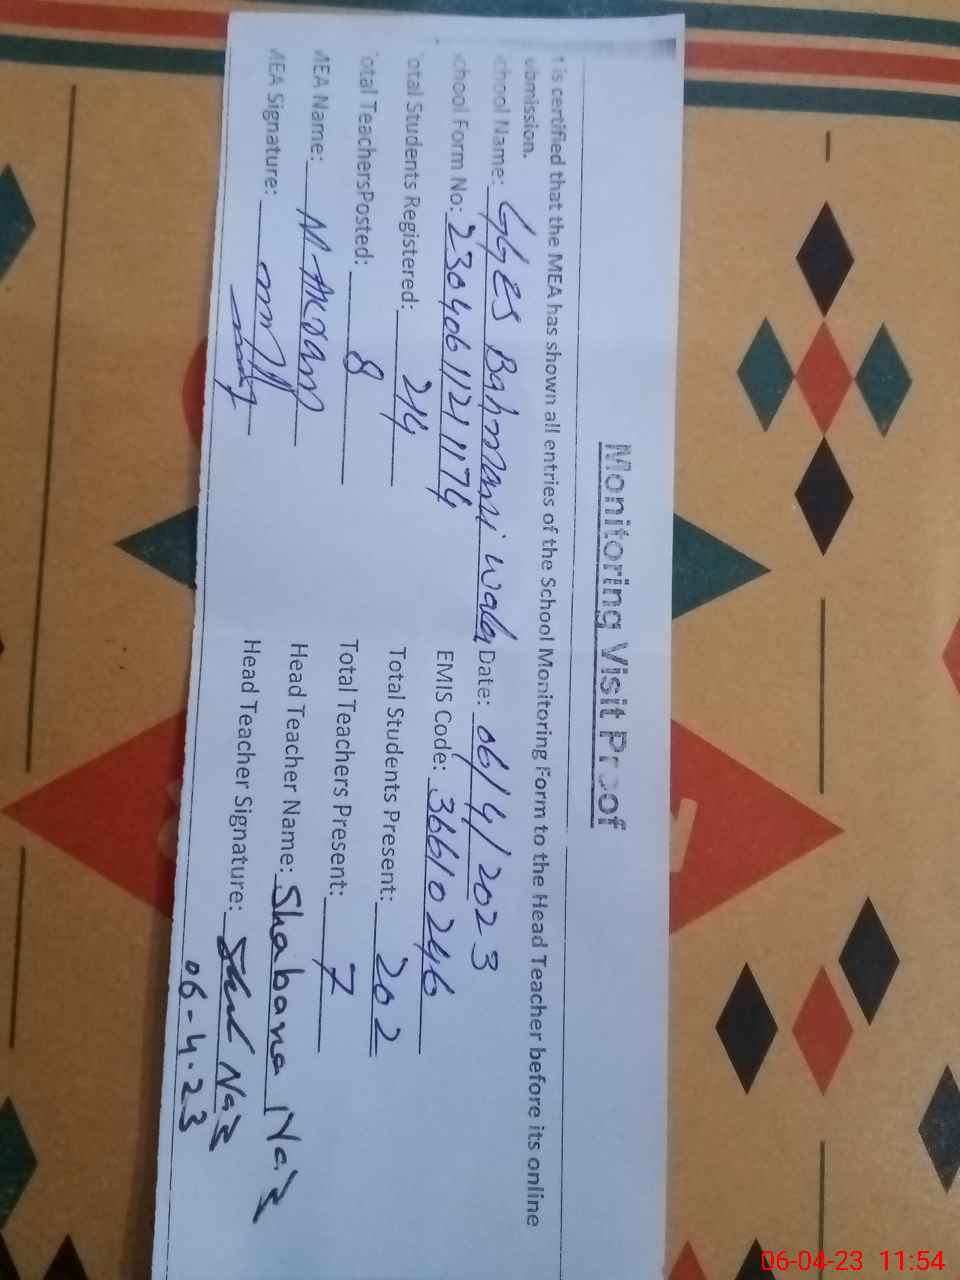 Monitoring Visit Proof
t is certified that the MEA has shown all entries of the School Monitoring Form to the Head Teacher before its online
ubmission.
chool Name: GGES Bahmani wala Date: 06/4/2023
chool Form No: 23040611211174 EMIS Code: 36610246
otal Students Registered: 214 Total Students Present: 202
otal TeachersPosted: 8 Total Teachers Present: 7
MEA Name: M Akram Head Teacher Name: Shabana Naz
MEA Signature: Head Teacher Signature: Naz
06-4.23
06-04-23 11:54